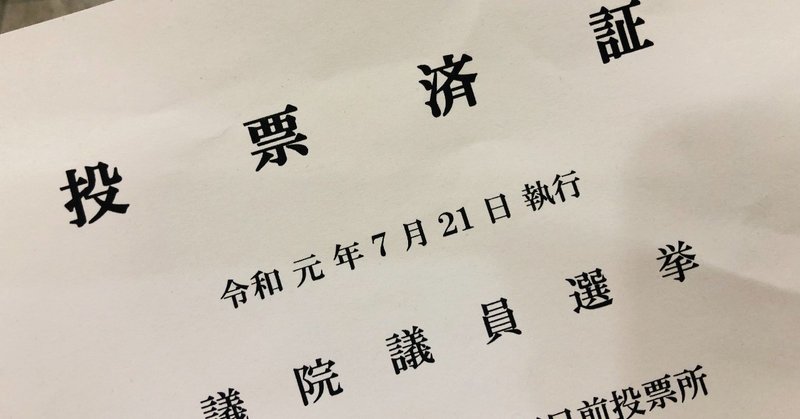 投票済証
令和元年7月21日執行
議院議員選挙
日前投票所